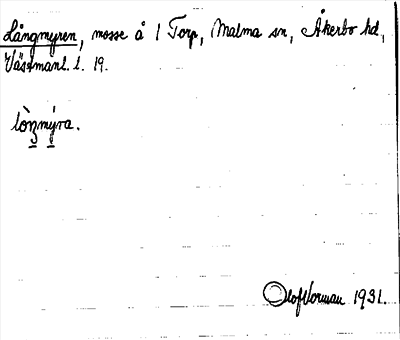 Långmyren, mosse å 1 Torp, Malma sn, Åkerbo hd,
Västmanl. l. 19.
lòŋmýra.
Olof Norman 1931.